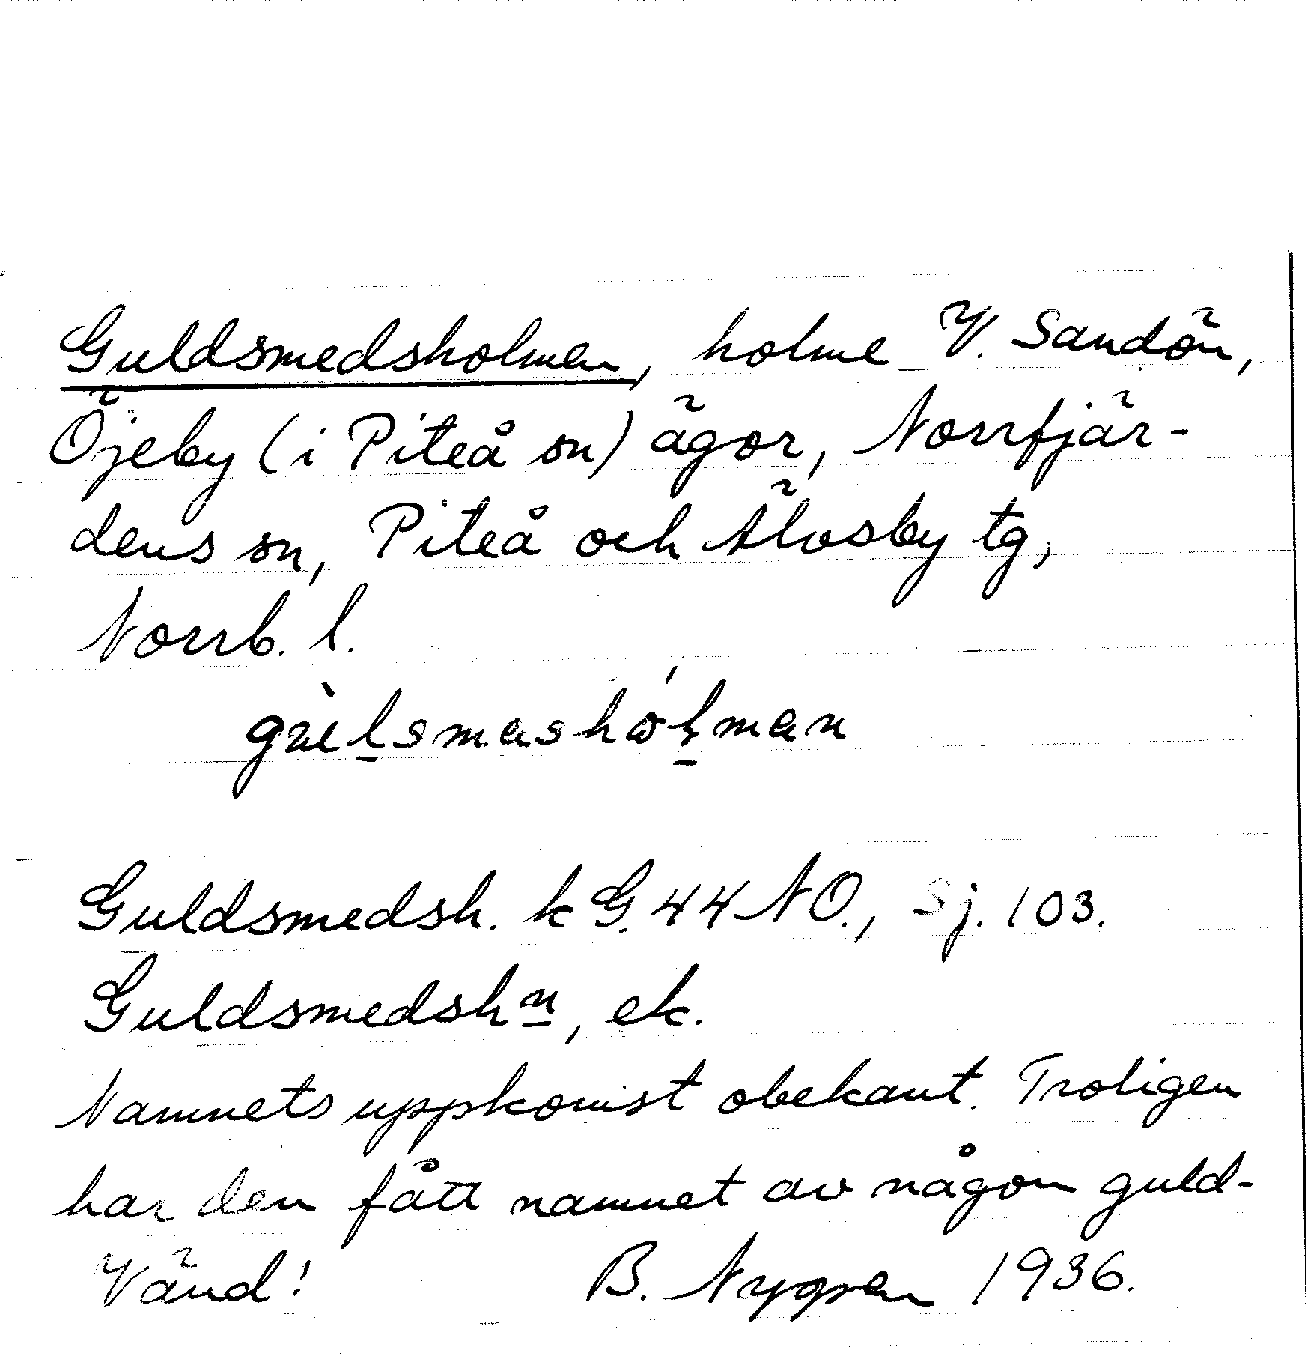 Guldsmedsholmen, holme V. Sandön,
Öjeby (i Piteå sn) ägor, Norrfjär-
dens sn, Piteå och Älvsby tg,
Norrb. l.
Guldsmedsh. kG. 44 NO., Sj. 103.
Guldsmedshn, ek.
Namnets uppkomst obekant. Troligen
har den fått namnet av någon guld-
Vänd! B. Nygren 1936.